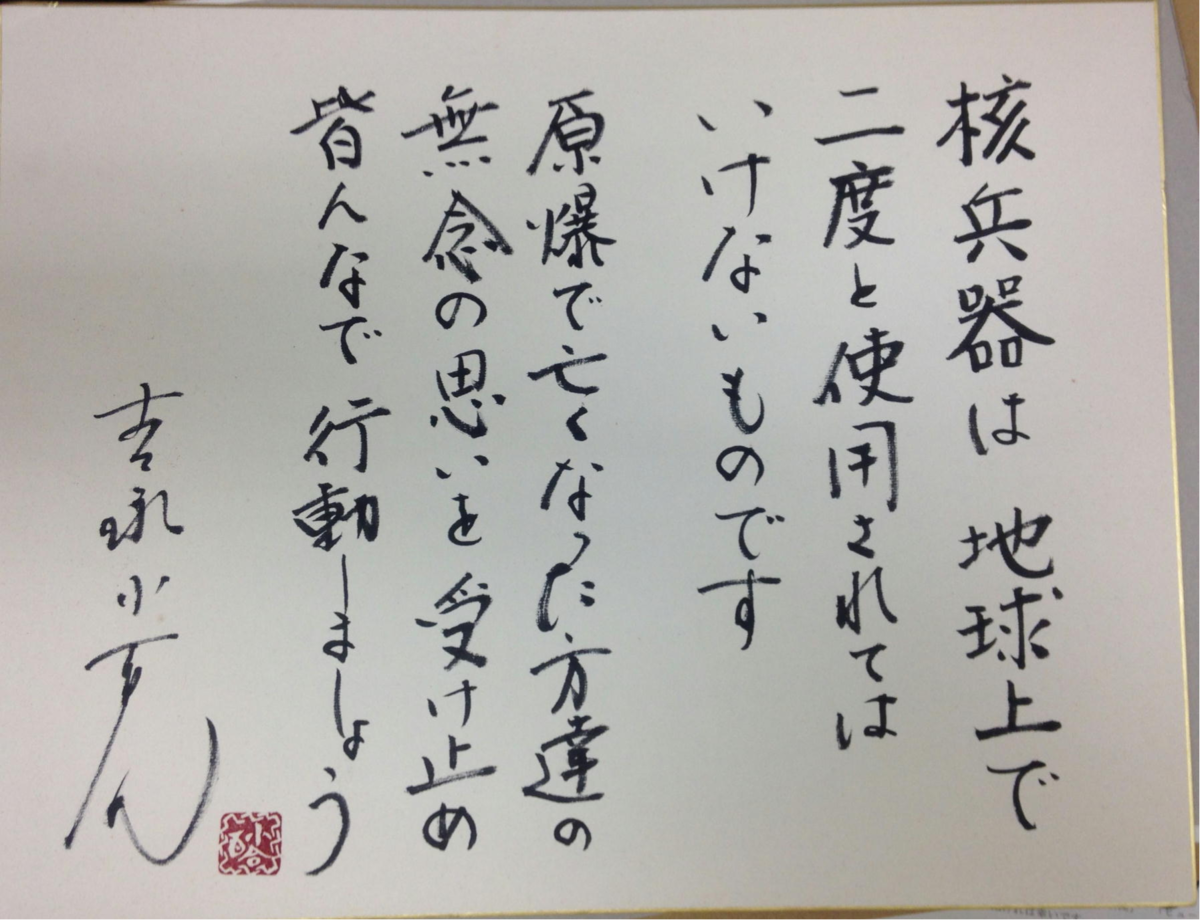 核兵器は 地球上で
二度と使用されては
いけないものです
原爆で亡くなった方達の
無念の思いを 受け止め
皆んなで 行動しましょう
吉永小百合
小百合